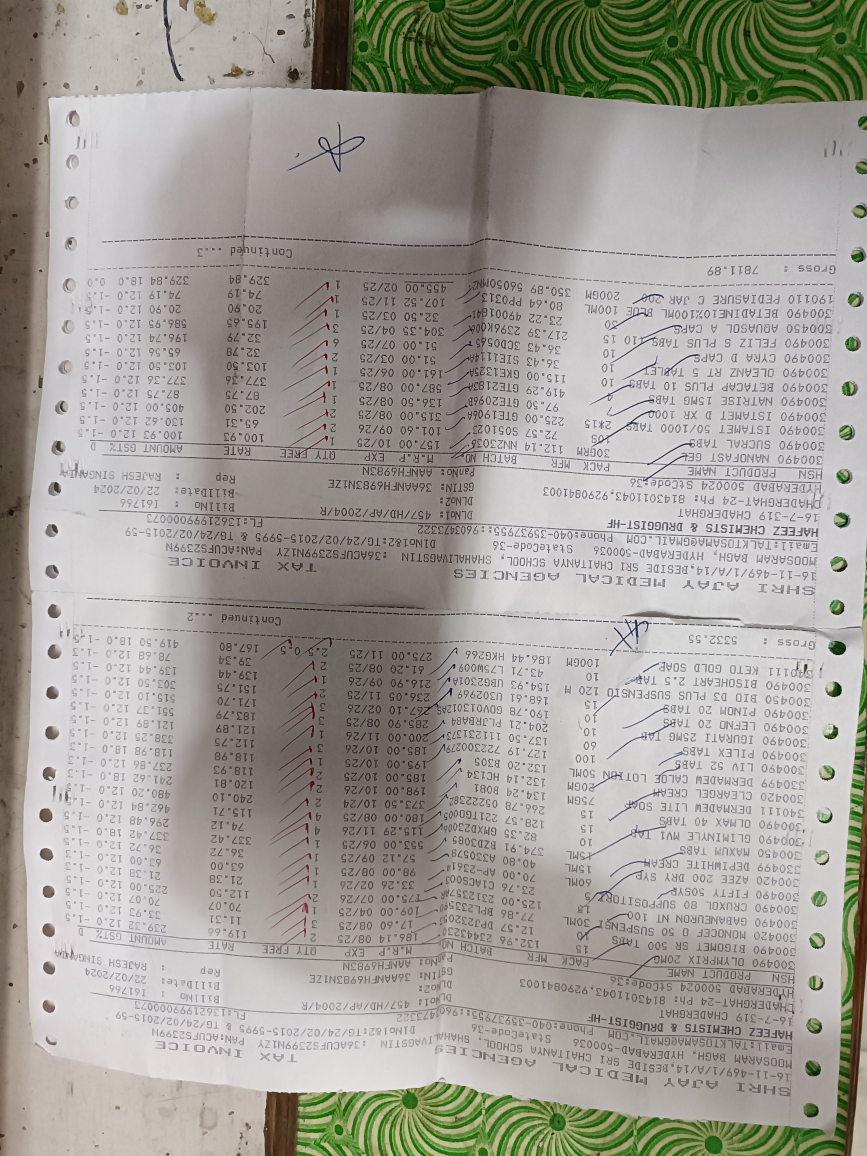 SHRI AJAY MEDICAL AGENCIES TAX INVOICE
16-11-469/1/A/14,BESIDE SRI CHAITANYA SCHOOL, SHAHALIVAGSTIN :36ACUFS2399N1ZY PAN:ACUFS2399N
MOOSARAM BAGH, HYDERABAD-500036 StateCode-36 DlNo1&2:TG/24/02/2015-5995 & TG/24/02/2015-59
Email:TALKTOSAMA@GMAIL.COM Phone:040-35937955::9603473322 FL:13621999000073
HAFEEZ CHEMISTS & DRUGGIST-HF
16-7-319 CHADERGHAT DLNO1: 457/HD/AP/2004/R BillNo : 161766
CHADERGHAT-24 Ph: 8143011043,9290841003 DLNo2: BillDate: 22/02/2024
HYDERABAD 500024 Stcode:36 GSTIN: 36AANFH6983N1ZE Rep : RAJESH SINGANIA
PanNo: AANFH6983N
HSN PRODUCT NAME PACK MFR BATCH NO M.R.P EXP QTY FREE RATE AMOUNT GST% D
300490 OLYMPRIX 20MG 15 132.96 23443236 186.14 08/25 2 119.66 239.32 12.0 -1.5
300490 BIGOMET SR 500 TABS 15 12.57 17.60 08/25 3 11.31 33.93 12.0 -1.5
300420 MONOCEF D 50 SUSPENSI 30ML 77.86 109.00 04/25 1 70.07 70.07 12.0 -1.5
300450 GABANEURON NT 100 15 125.00 231237SR 175.00 07/26 2 112.50 225.00 12.0 -1.5
300490 CRUXOL 80 SUPPOSITORY 5 23.76 CIACS003 33.26 02/26 1 21.38 21.38 12.0 -1.5
300490 FIFTY 50SYR 60ML 70.00 AP-23614 98.00 08/25 1 63.00 63.00 12.0 -1.3
300420 AZEE 200 DRY SYP 15ML 40.80 A330578 57.12 09/25 1 36.72 36.72 12.0 -1.5
330499 DEPIWHITE CREAM 15ML 374.91 BZD3085 553.00 06/25 1 337.42 337.42 18.0 -1.5
300450 MAXUM TABS 10 82.35 GMXD23006 115.29 11/26 4 74.12 296.48 12.0 -1.5
300490 GLIMINYLE MV1 TAB 15 128.57 22TG1T005 180.00 08/25 4 115.71 462.84 12.0 -1.5
300490 OLMAX 40 TABS 15 266.78 373.50 10/24 2 240.10 480.20 12.0 -1.5
340111 DERMADEW LITE SOAP 75GM 134.24 8081 198.00 10/25 2 120.81 241.62 18.0 -1.3
300420 CLEARGEL CREAM 20GM 132.14 HC134 185.00 10/25 2 118.93 237.86 12.0 -1.3
330499 DERMADEW CALOE LOTION 50ML 132.20 B305 195.00 10/25 1 118.98 118.98 18.0 -1.3
300490 LIV 52 TABS 100 127.19 185.00 10/26 3 112.75 338.25 12.0 -1.5
300490 PILEX TABS 60 137.50 111231373 200.00 11/26 1 121.89 121.89 12.0 -1.5
300490 IGURATI 25MG TAB 10 204.21 PLJRB484 285.90 08/25 3 183.79 551.37 12.0 -1.5
300490 LEFNO 20 TABS 10 190.78 GOVA13012AS 267.10 02/26 3 171.70 515.10 12.0 -1.5
300490 PINOM 20 TABS 15 168.61 U302969 236.05 11/25 2 151.75 303.50 12.0 -1.5
300450 BIO D3 PLUS SUSPENSIO 120 M 154.93 UBG2301A 216.90 09/26 1 139.44 139.44 12.0 -1.5
300490 BISOHEART 2.5 TAB 10 43.71 L75M009 61.20 08/25 2 39.34 78.68 12.0 -1.3
340111 KETO GOLD SOAP 100GM 186.44 HKG266 275.00 11/25 2.5 0.5 167.80 419.50 18.0 -1.5
Gross : 5332.55 Continued ...2
SHRI AJAY MEDICAL AGENCIES TAX INVOICE
16-11-469/1/A/14,BESIDE SRI CHAITANYA SCHOOL, SHAHALIVAGSTIN :36ACUFS2399N1ZY PAN:ACUFS2399N
MOOSARAM BAGH, HYDERABAD-500036 StateCode-36 DlNo1&2:TG/24/02/2015-5995 & TG/24/02/2015-59
Email:TALKTOSAMA@GMAIL.COM Phone:040-35937955::9603473322 FL:13621999000073
HAFEEZ CHEMISTS & DRUGGIST-HF
16-7-319 CHADERGHAT DLNO1: 457/HD/AP/2004/R BillNo : 161766
CHADERGHAT-24 Ph: 8143011043,9290841003 DLNo2: BillDate: 22/02/2024
HYDERABAD 500024 Stcode:36 GSTIN: 36AANFH6983N1ZE Rep : RAJESH SINGANIA
PanNo: AANFH6983N
HSN PRODUCT NAME PACK MFR BATCH NO M.R.P EXP QTY FREE RATE AMOUNT GST% D
300490 NANOFAST GEL 30GM 112.14 NN23036 157.00 10/25 1 100.93 100.93 12.0 -1.5
300490 SUCRAL TABS 10S 72.57 SOS1025 101.60 09/26 2 65.31 130.62 12.0 -1.5
300490 ISTAMET 50/1000 TABS 2*15 225.00 GTE1906A 315.00 08/25 2 202.50 405.00 12.0 -1.5
300490 ISTAMET D XR 1000 7 97.50 GTE2096B 136.50 08/25 1 87.75 87.75 12.0 -1.5
300490 NATRISE 15MG TABS 4 419.29 GTE2183A 587.00 08/25 1 377.36 377.36 12.0 -1.5
300490 BETACAP PLUS 10 TABS 10 115.00 GKE1325A 161.00 06/25 1 103.50 103.50 12.0 -1.5
300490 OLEANZ RT 5 TABLET 10 36.43 SIE1114A 51.00 03/25 2 32.78 65.56 12.0 -1.5
300490 CYRA D CAPS 10 36.43 3CD5065 51.00 07/25 6 32.79 196.74 12.0 -1.5
300490 FELIZ S PLUS TABS (10 15 217.39 304.35 04/25 3 195.65 586.95 12.0 -1.5
300450 AQUASOL A CAPS 30 23.22 32.50 03/25 1 20.90 20.90 12.0 -1.5
300490 BETADINE10%100ML BLUE 100ML 80.64 PP0313 107.52 11/25 1 74.19 74.19 12.0 -1.5
190110 PEDIASURE C JAR 200 200GM 350.89 56050MN2 455.00 02/25 1 329.84 329.84 18.0 0.0
Gross : 7811.89 Continued ...3